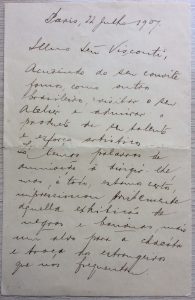 Paris, 22 Julho 1907.
Illmo Snr Visconti,
Accedendo do seu convite
fomos, como outros
brasileiros, visitar o seu
Atelier e admirar o
producto de seu talento
e esforço artistico
Não temos palavras de
a dirigir-lhe,
mas a todos, estamos certos,
impressionou fortemente
aquella exhibição de
negros e bananas, mais
um alvo para a chacota
e troça dos estrangeiros
que nos frequentam.